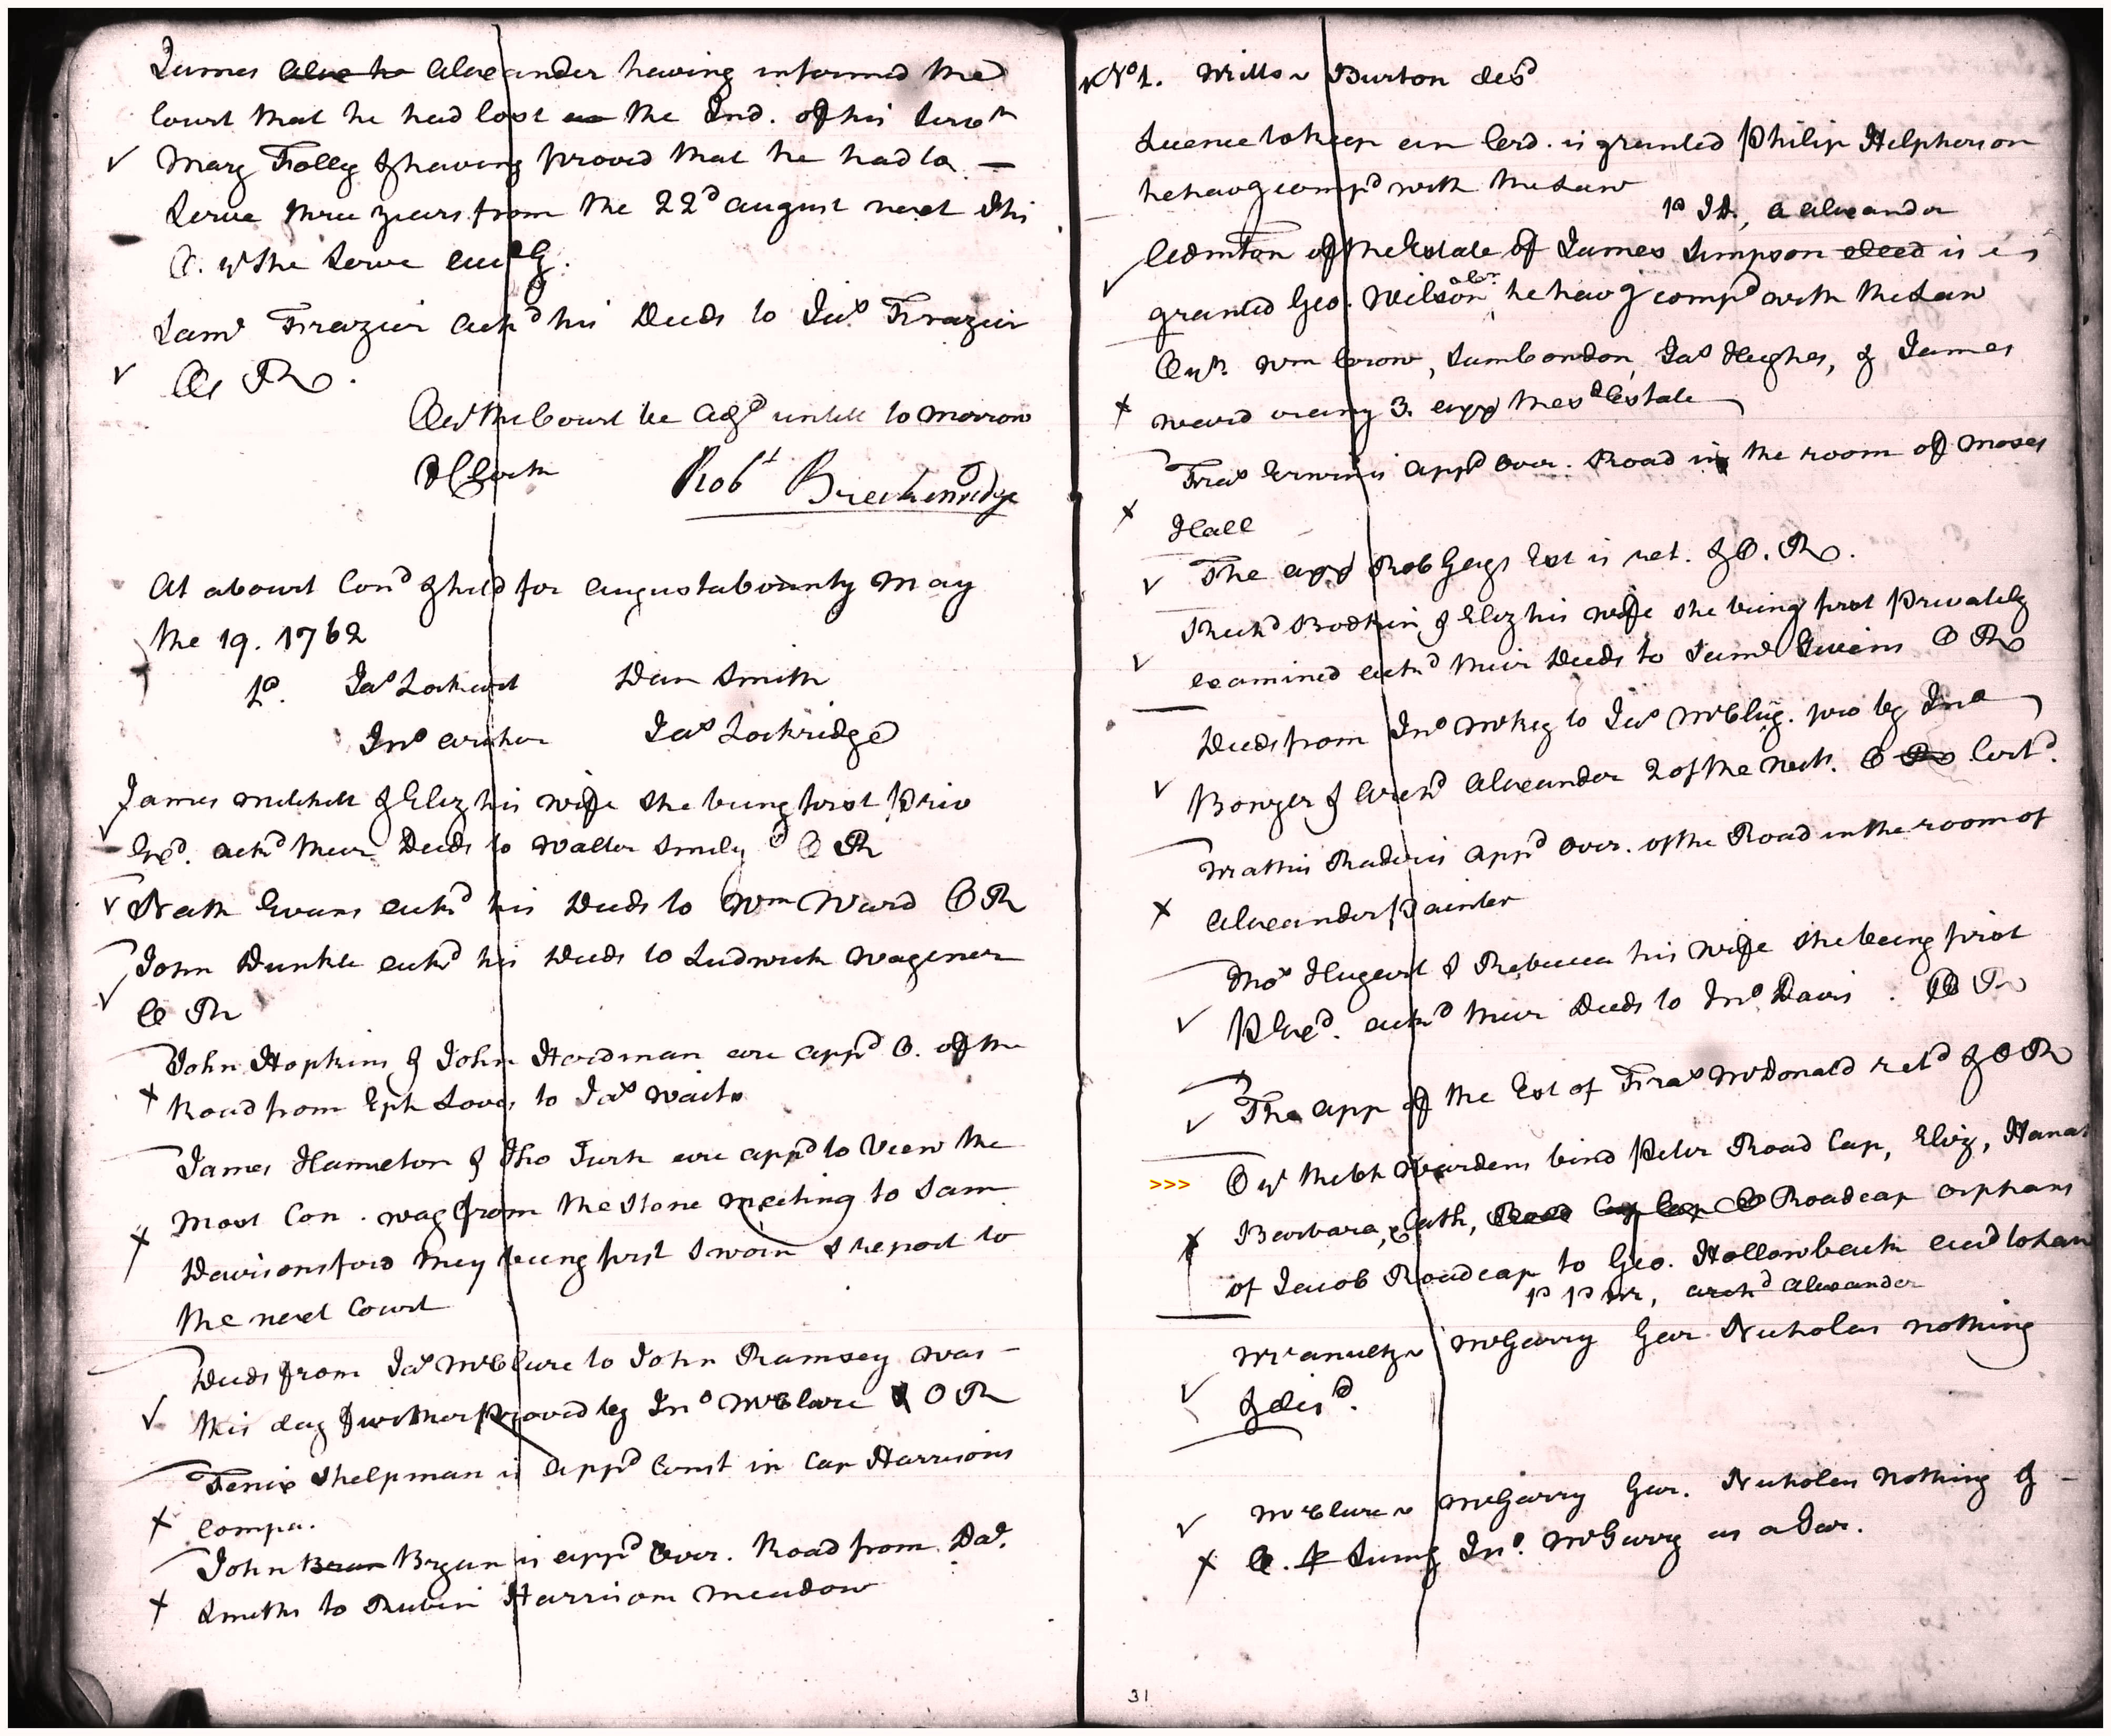 James Alexander having informed the
Court that he had lost the Ind. of his Servt
Mary Folley & having proved that he had to
Serve three years from the 22d August next this
O. yt She Serve
Saml Frazier ackd his Deeds to Jas Frazier
O R
Od the Court be Adjd untill to morrow
Robt Breckenridge
At a Court Cond & held for Augusta County May
the 19. 1762
Pt. Jas Lockart Dan Smith
Jno Archer Jas Lockridge
James Mitchell & Eliz his wife She being first Priv
Exd. ackd their Deeds to Walter Smily O R
Nath Evans ackd his Deeds to Wm Ward O R
John Dunkle ackd his Deeds to Ludwick Wagener
O R
John Hopkins & John Herdman are appd O. of the
Road from Eph Loves to Jas Waits
James Hamelton & Tho Turk are appd to View the
Most Con. way from the Stone Meeting to Sam
Davisons ford they being first Sworn & report to
the next Court
Deeds from Jas McClure to John Ramsey was
this day further proved by Jno McClure & O R
Fenix Shelpman is Appd Const in Cap Harrisons
Compa.
John Bryan is appd Over. Road from Da.
Smiths to Rubin Harrisons meadow
No 1. Mills v Burton disd
Licence to keep an Ord. is granted Philip Helpherson
he havg compd with the Law
A Alexander
Admton of the Estate of James Simpson deed is
granted Geo. Wilson he havg compd with the Law
Od. Wm Crow, Sam Condon, Jas Hughes, & James
Ward or any 3. app the sd Estate
Fras Erwin is appd Over. Road in the room of Moses
Hall
The app Rob Gays Est is ret. & O. R.
Richd Bodkin & Eliz his wife She being first Privately
examined ackd their Deeds to Saml Givens O R
Deeds from Jno McKey to Jas McClug. pro by Jno
Bonyer & Archd Alexander 2 of the witn. O R Certd.
Mathis Rader is appd Over. of the Road in the room of
Alexander Painter
Thos Hugart & Rebecca his wife She being first
P Exd. ackd their Deeds to Jno Davis. O R
The app of the Est of Fras McDonald retd & O R
>>> Od the Ch Wardens bind Peter Road Cap, Eliz, Hana
Barbara, Cath, Roadcap orphans
of Jacob Roadcap to Geo. Hollowback accd to Law
P P Mr, Archd Alexander
v McGarry Gar Nicholas nothing
& disd.
McClure v McGarry Gar. Nicholas nothing &
O. Jno. McGarry as a Gar.
31